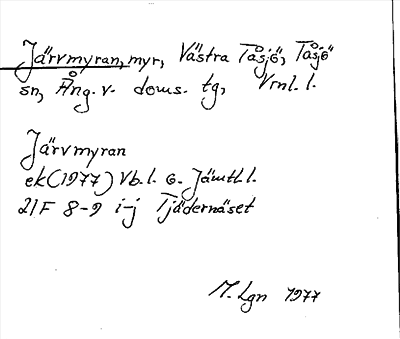 Järvmyran, myr, Västra Tåsjö, Tåsjö
sn, Ång. v. doms. tg, Vrnl. l.
Järvmyran
ek (1977) Vb. l. o. Jämtl. l.
21F 8-9 i-j Tjädernäset
M. Lgn 1977